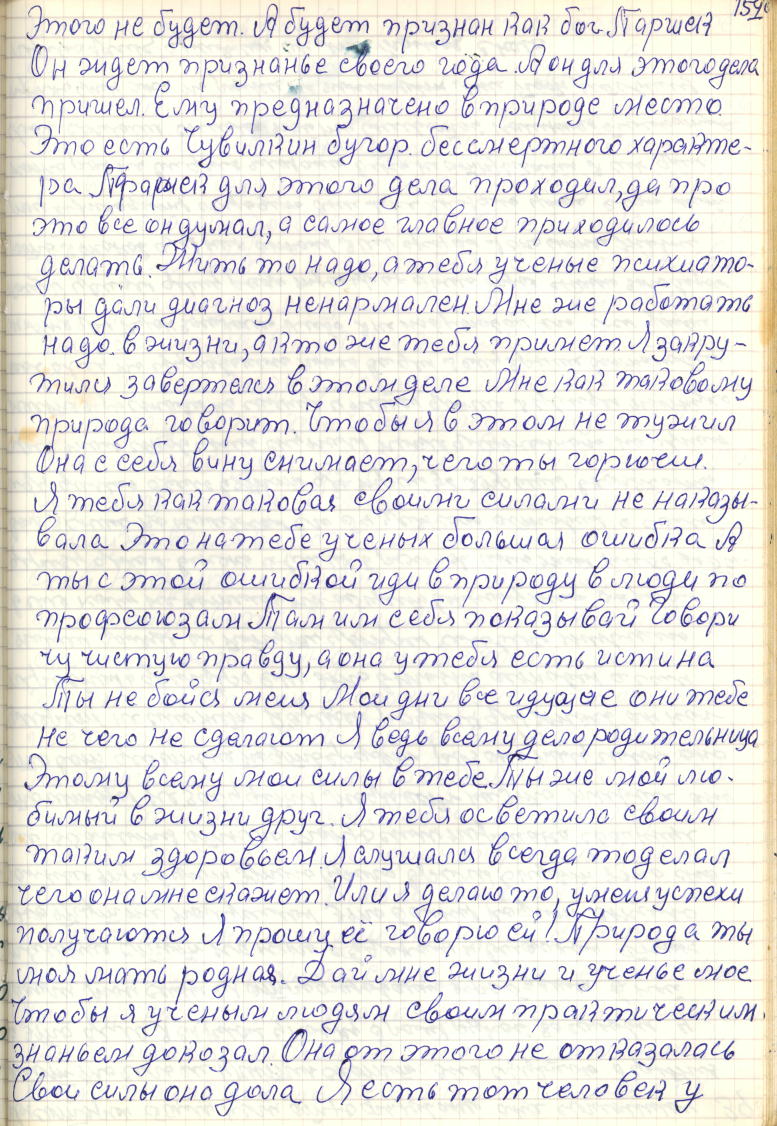 159
Этого не будет. А будет признан как бог Паршек
Он ждет признанье своего года. А он для этого дела
пришел. Ему предназначено в природе место.
Это есть Чувилкин бугор. бессмертного характе-
ра Паршек для этого дела проходил, да про
это все он думал, а самое главное приходилось
делать. Жить то надо, а тебя ученые психиато-
ры дали диагноз ненармален. Мне же работать
надо. в жизни, а кто же тебя примет Я закру-
тился завертелся в этом деле Мне как таковому
природа говорит. Чтобы я в этом не тужил
Она с себя вину снимает, чего ты горюеш.
Я тебя как таковая своими силами не наказы-
вала Это на тебе ученых большая ошибка А
ты с этой ошибкой иди в природу в люди по
профсоюзам Там им себя показывай Говори
чу чистую правду, а она у тебя есть истина
Ты не бойся меня Мои дни все идущие они тебе
не чего не сделают Я ведь всему делородительница
Этому всему мои силы в тебе. Ты же мой лю-
бимый в жизни друг. Я тебя осветила своим
таким здоровьем. Я слушался всегда то делал
чего она мне скажет. Или я делаю то, у меня успехи
получаются Я прошу её говорю ей! Природа ты
моя мать родная. Дай мне жизни и ученье мое
Чтобы я ученым людям своим практическим
знаньем докозал. Она от этого не отказалась
Свои силы она дола Я есть тот человек у